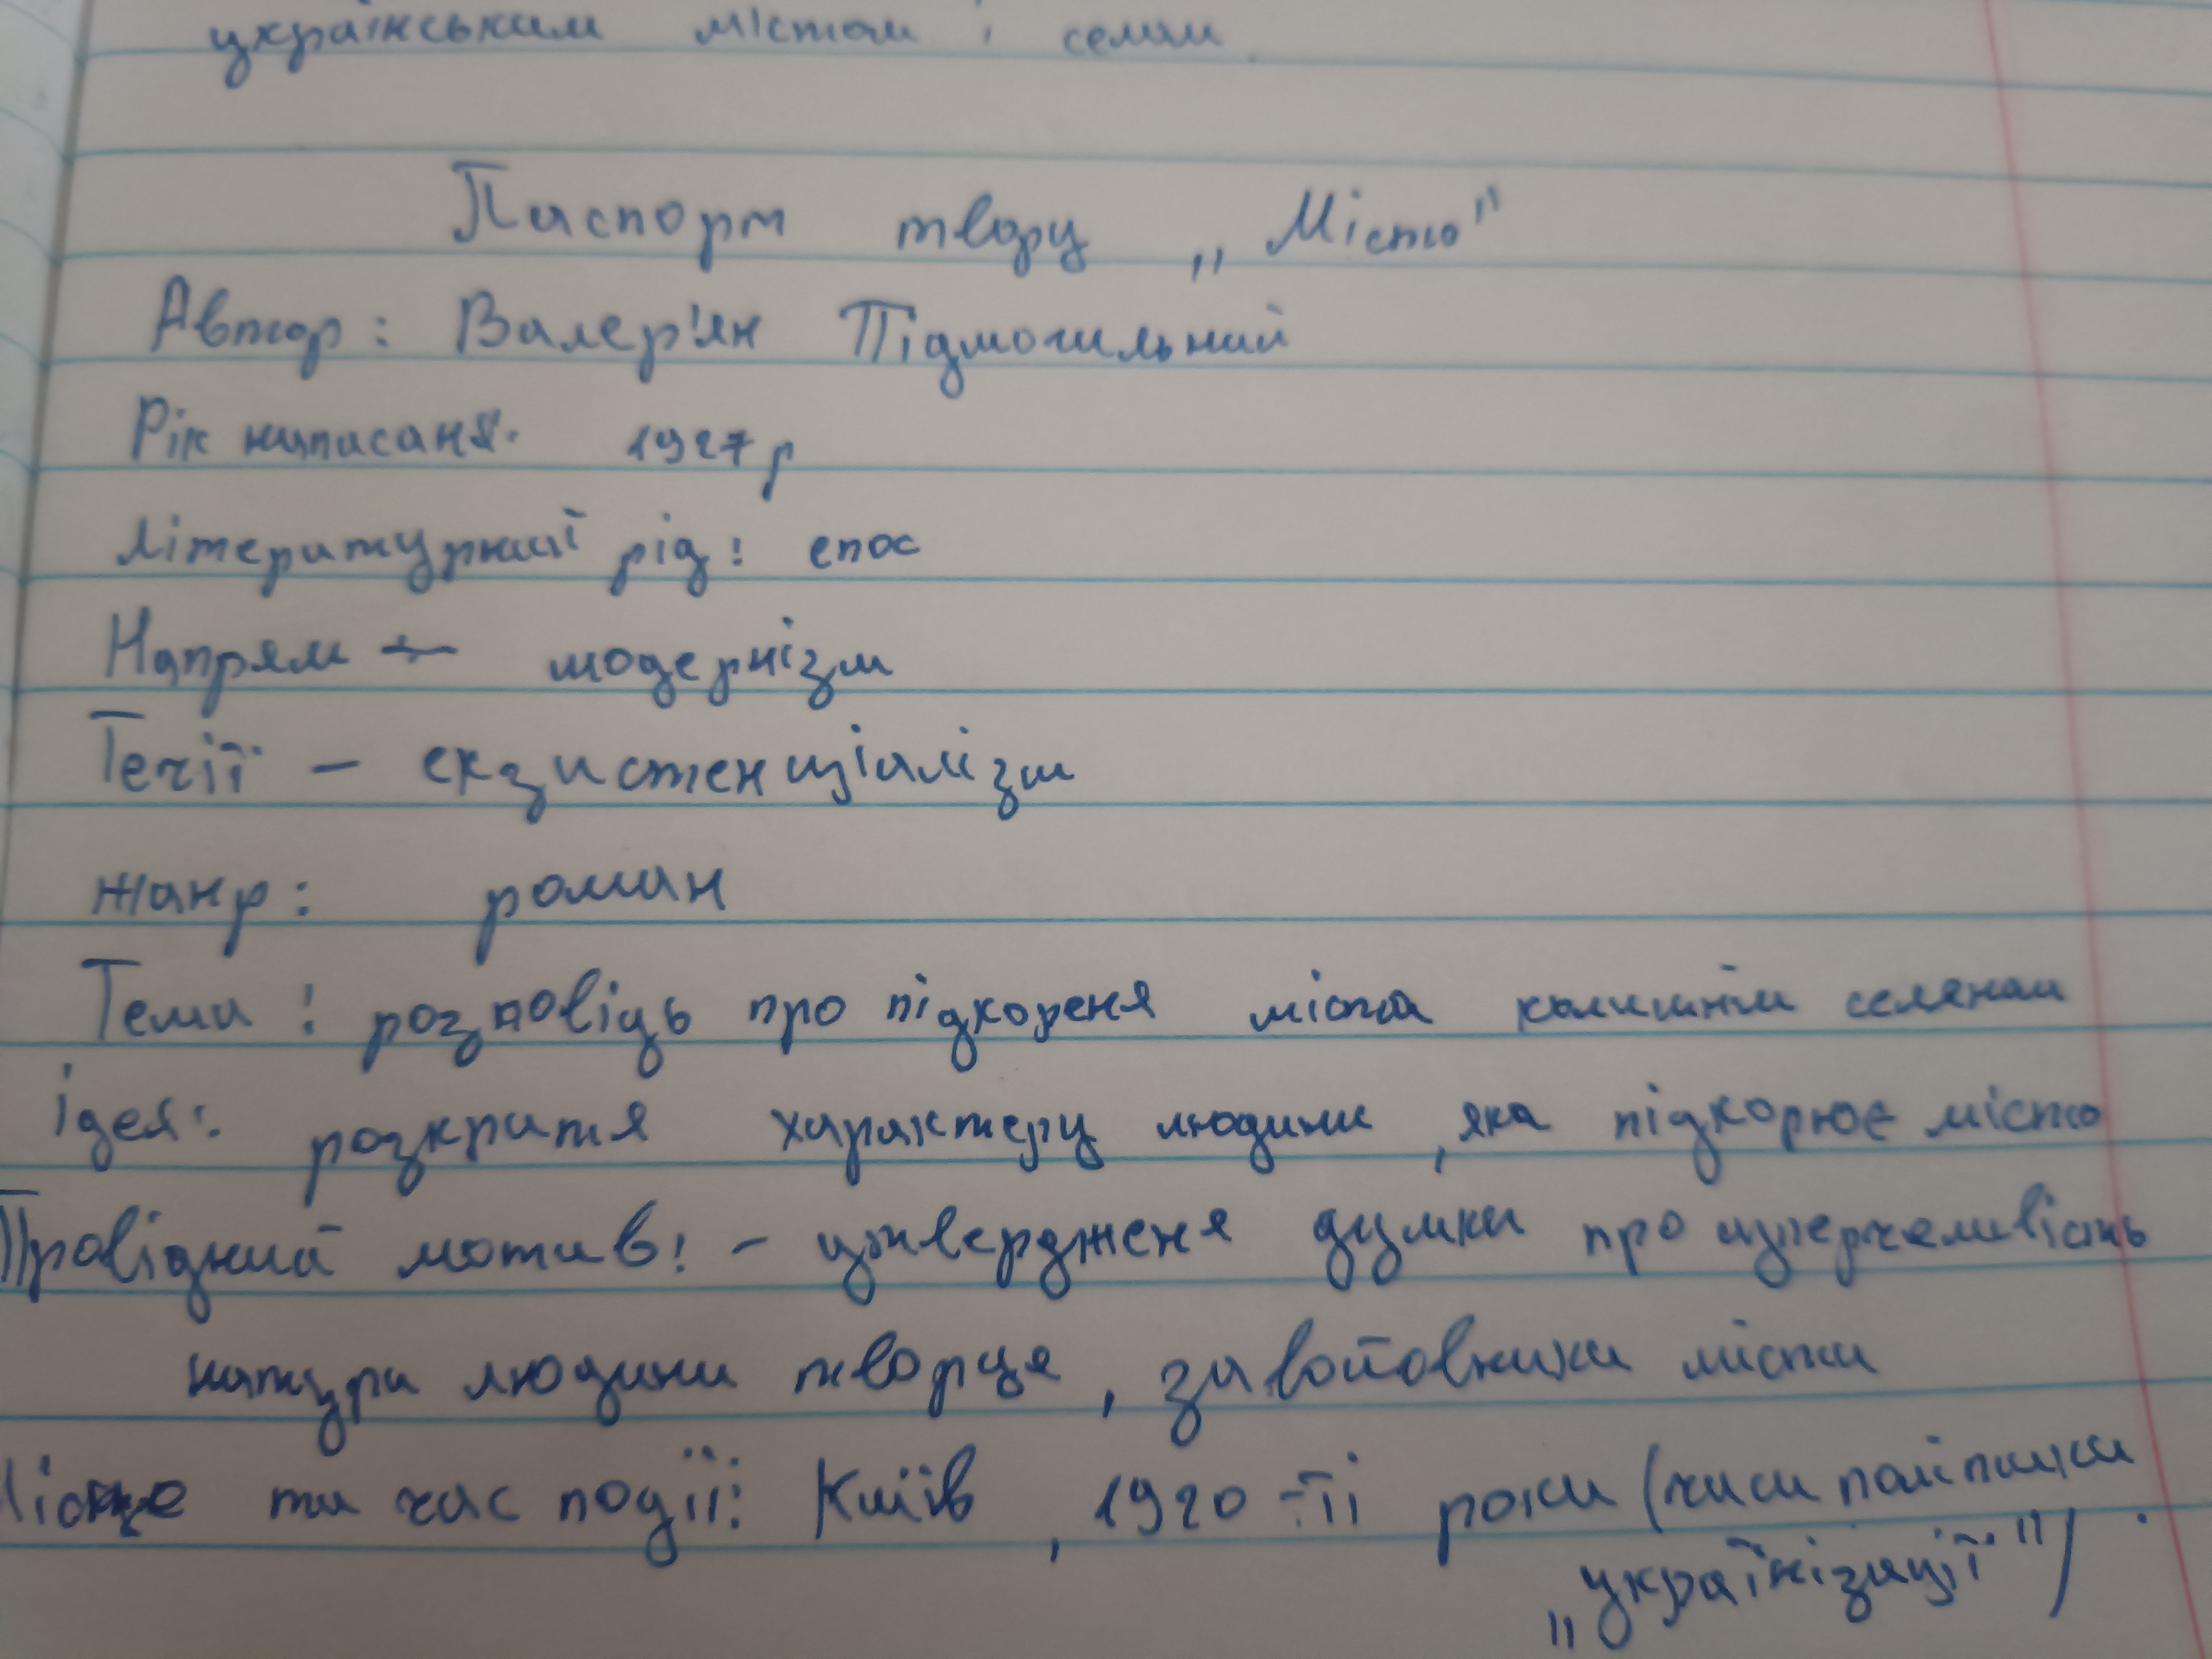 українським містом і селом.
Паспорт твору „Місто"
Автор: Валер'ян Підмогильний
Рік написаня: 1927 р
Літературний рід: епос
Напрям – модернізм
Течії – екзистенціалізм
жанр: роман
Тема: розповідь про підкореня міста колишнім селяном
ідея: розкритя характеру людини, яка підкорює місто
Провідний мотив: – утвердженя думки про суперечливість
натури людини творця, завойовника міста
Місце та час події: Київ, 1920-ті роки (часи політики
„українізації").